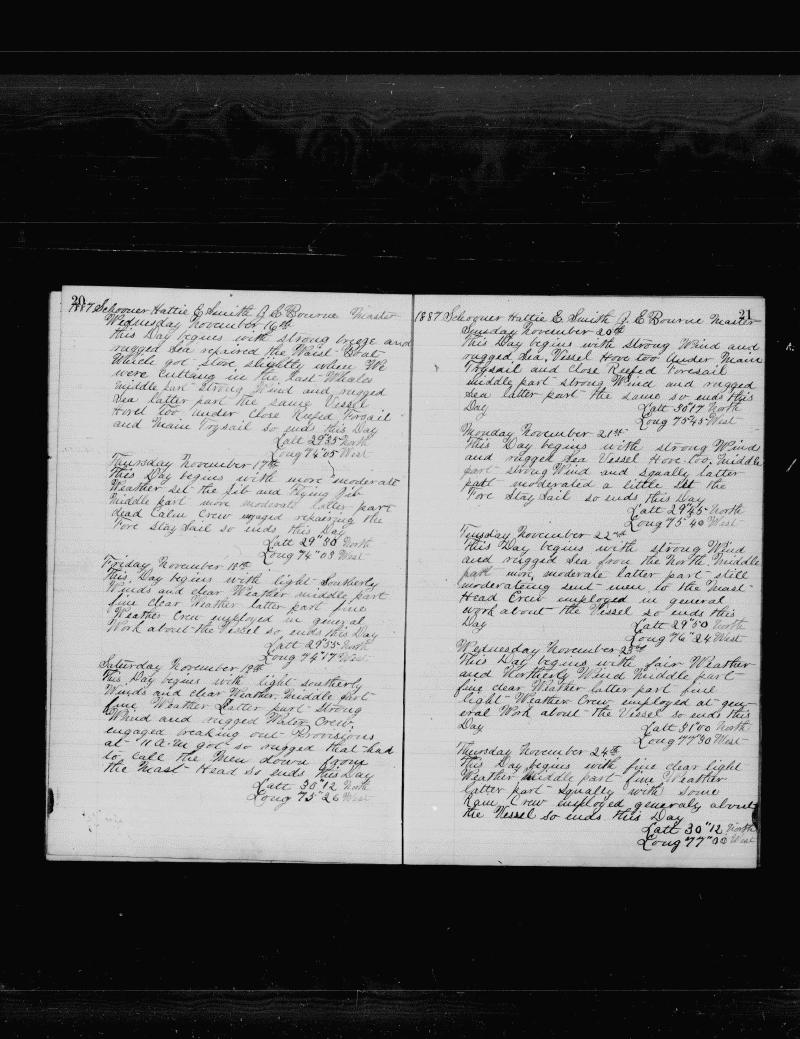 20
1887 Schooner Hattie E Smith J. E Bourne Master
Wednesday November 16th
this Day begins with strong breeze and
rugged Sea repaired the Waist Boat
Which got stove slightly when We
were Cutting in the last Whales
middle part strong Wind and rugged
Sea latter part the same Vessel
Hove too under Close Reefed Forsail
and Main Trysail so ends this Day
Latt 29"35 North
Long 74"05 West
Thursday November 17th
this Day begins with more moderate
Weather set the Jib and Flying Jib
Middle part more moderate latter part
dead Calm Crew engaged repairing the
Fore Stay Sail so ends this Day
Latt 29"30 North
Long 74"03 West
Friday November 18th
This Day begins with light Southerly
Winds and clear Weather middle part
fine clear Weather latter part fine
Weather Crew employed in general
Work about the Vessel so ends this Day
Latt 29"55 North
Long 74"17 West
Saturday November 19th
This Day begins with light southerly
Winds and clear Weather. Middle part
fine Weather Latter part strong
Wind and rugged Water Crew
engaged breaking out Provisions
at 11 A.M got so rugged that had
to call the Men down from
the Mast Head so ends this Day
Latt 30"12 North
Long 75"26 West
21
1887 Schooner Hattie E Smith J. E Bourne Master
Sunday November 20th
This Day begins with Strong Wind and
rugged Sea, Vessel Hove too Under Main
Trysail and Close Reefed Foresail
middle part strong Wind and rugged
Sea latter part the same so ends this
Day
Latt 30"17 North
Long 75"45 West
Monday November 21st
This Day begins with strong Wind
and rugged Sea Vessel Hove too. Middle
part strong Wind and squally latter
part moderated a little Set the
Fore Stay Sail so ends this Day
Latt 29"45 North
Long 75"40 West
Tuesday November 22nd
This Day begins with strong Wind
and rugged Sea from the North. Middle
part more moderate latter part still
moderating send men to the Mast
Head Crew employed in general
work about the Vessel so ends this
Day
Latt 29"50 North
Long 76"24 West
Wednesday November 23rd
This Day begins with fair Weather
and Northerly Wind Middle part
fine clear Weather latter part fine
light Weather Crew employed at gen-
eral Work about the Vessel so ends this
Day
Latt 31"00 North
Long 77"30 West
Thursday November 24th
This Day begins with fine clear light
Weather Middle part fine Weather
latter part Squally with some
Rain Crew employed generaly about
the Vessel so ends this Day
Latt 30"12 North
Long 77"00 West